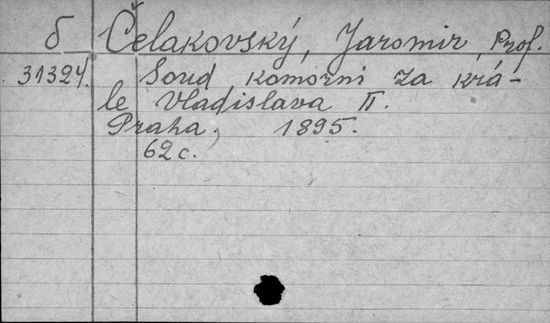 б Čelakovský, Jaromir, Prof.
31324. Soud komorni za krá-
le Vladislava II.
Praha, 1895.
62 c.